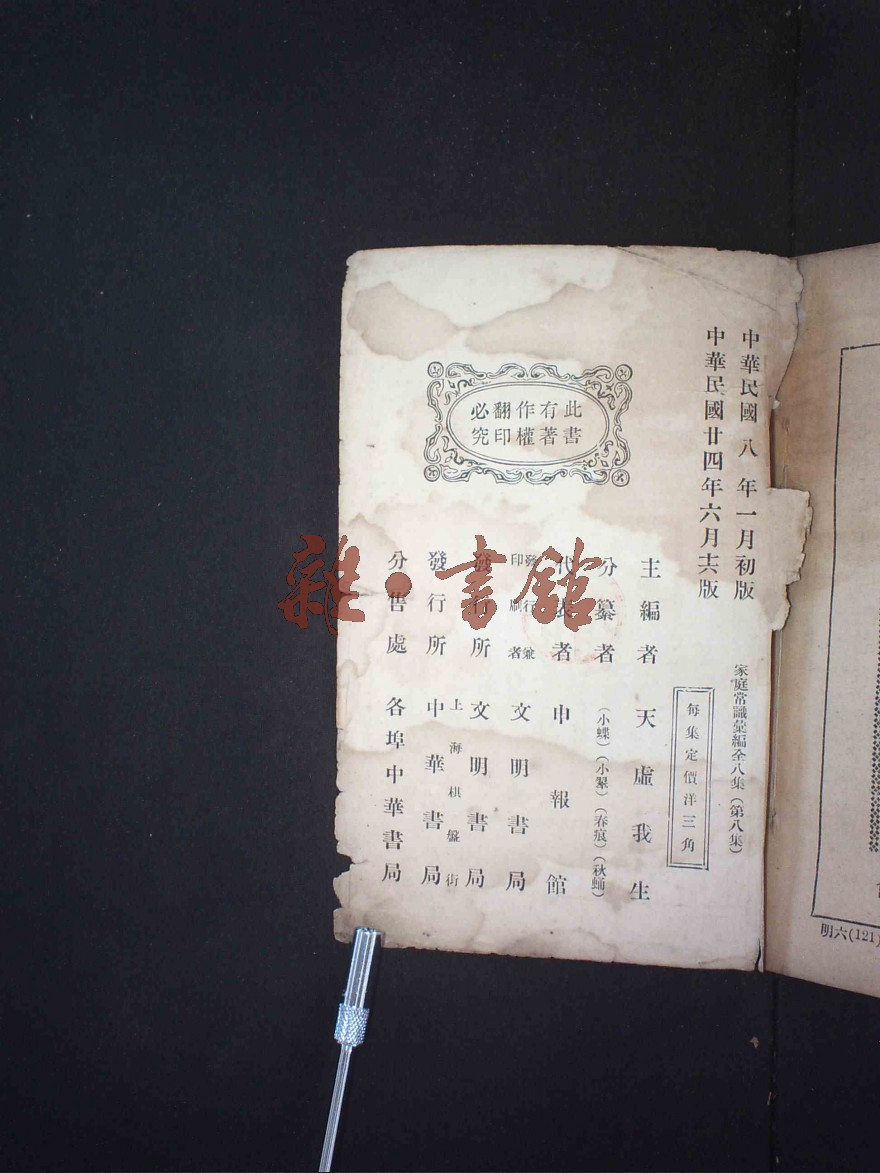 中華民國八年一月初版
中華民國廿四年六月十六版
家庭常識彙編全八集（第八集）
每集定價洋三角
此書
有著
作權
翻印
必究
主編者 天虛我生
分纂者 （小蝶）（小翠）（春痕）（秋蛹）
代表者 申報館
發行兼
印刷者 文明書局
發行所 文明書局
上海棋盤街
發行所 中華書局
分售處 各埠中華書局
雜·書館
明六(121)